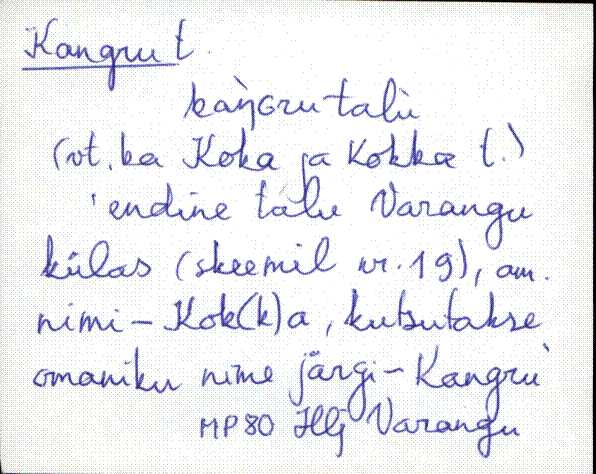 Kangru t.
kaŋ̀ɢru-talù
(vt. ka Koka ja Kokka t.)
'endine talu Varangu
külas (skeemil nr. 19), am.
nimi – Kok(k)a, kutsutakse
omaniku nime järgi – Kangru'
MP80 Hlj Varangu